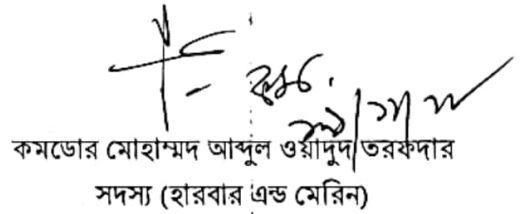 কমডোর মোহাম্মদ আব্দুল ওয়াদুদ তরফদার
সদস্য (হারবার এন্ড মেরিন)